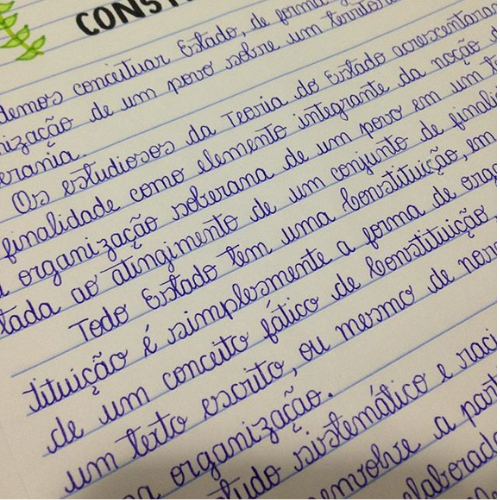 CONST
demos conceituar Estado, de forma
nização de um povo sobre um território
erania.
Os estudiosos da Teoria do Estado acrescentaram
finalidade como elemento integrante da noção
organização soberana de um povo em um
tada ao atingimento de um conjunto de finalid
Todo Estado tem uma Constituição, em
tituição é simplesmente a forma de orga
de um conceito fático de Constituição
um texto escrito, ou mesmo de nor
a organização.
tudo sistemático e raci
envolve a part
elaborada